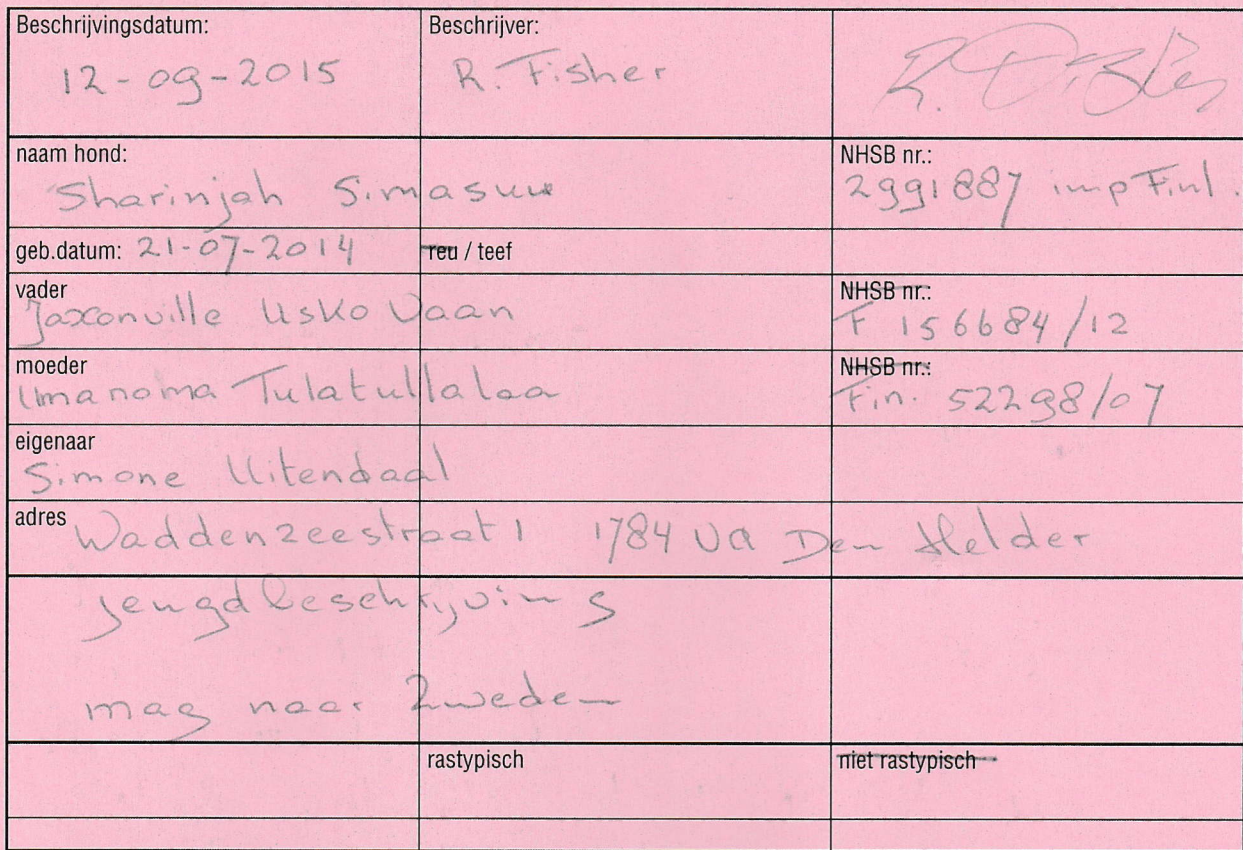 Beschrijvingsdatum: Beschrijver:
12-09-2015 R. Fisher
naam hond: NHSB nr.:
Sharinjah Simasuu 2991887 imp Finl.
geb.datum: 21-07-2014 reu / teef
vader NHSB nr.:
Jaxonville Usko Vaan F 156684/12
moeder NHSB nr.:
Umanoma Tulatullalaa Fin. 52298/07
eigenaar
Simone Uitendaal
adres Waddenzeestraat 1 1784 VA Den Helder
jeugdbeschrijving
mag naar Zweden
rastypisch niet rastypisch